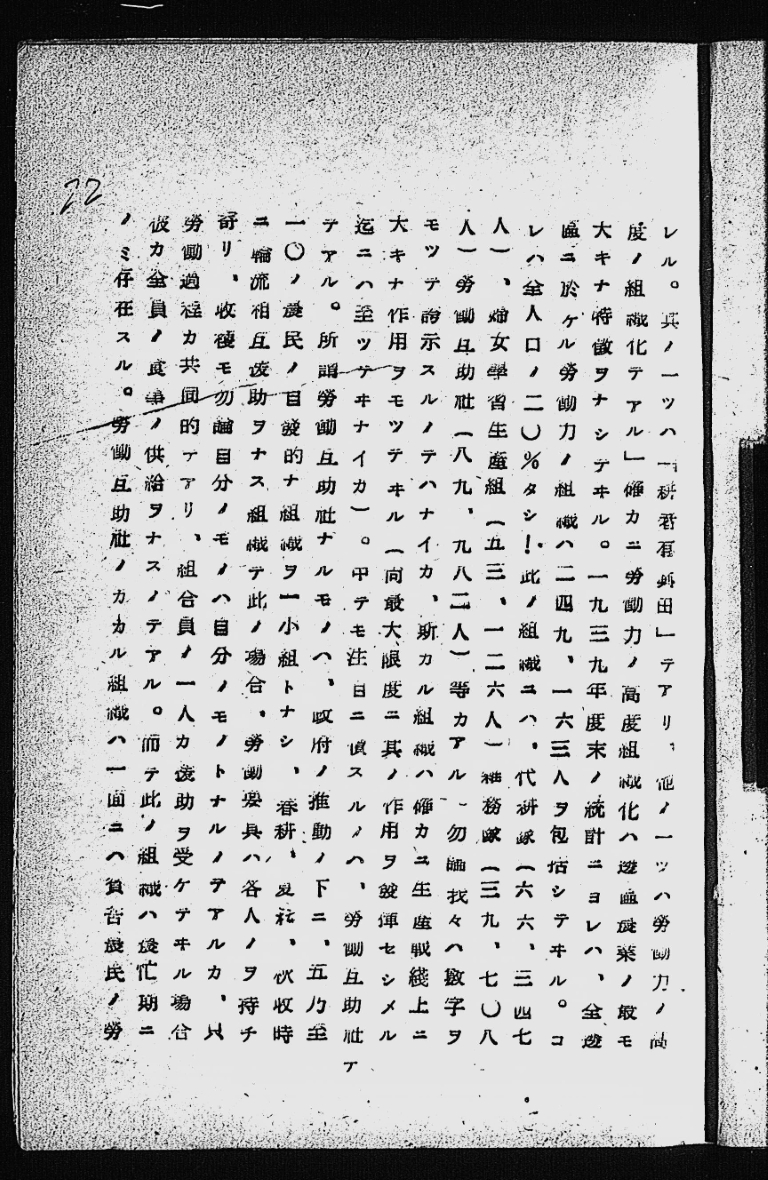 レル。其ノ一ツハ「耕者有其田」テアリ、他ノ一ツハ勞働力ノ高
度ノ組織化テアル」確カニ勞働力ノ高度組織化ハ邊區農業ノ最モ
大キナ特徴ヲナシテヰル。一九三九年度末ノ統計ニヨレハ、全邊
區ニ於ケル勞働力ノ組織ハ二四九、一六三人ヲ包括シテヰル。コ
レハ全人口ノ二〇％タシ！此ノ組織ニハ、代耕隊（六六、三四七
人）、婦女學習生産組（五三、一二六人）雜務隊（三九、七〇八
人）勞働互助社（八九、九八二人）等カアル、勿論我々ハ數字ヲ
モツテ誇示スルノテハナイカ、斯カル組織ハ確カニ生産戰綫上ニ
大キナ作用ヲモツテヰル（尚最大限度ニ其ノ作用ヲ發揮セシメル
迄ニハ至ツテヰナイカ）。中テモ注目ニ値スルノハ、勞働互助社テ
テアル。所謂勞働互助社ナルモノハ、政府ノ推動ノ下ニ、五乃至
一〇ノ農民ノ自發的ナ組織ヲ一小組トナシ、春耕、夏耘、秋收時
ニ輪流相互援助ヲナス組織テ此ノ場合、勞働要具ハ各人ノヲ持チ
寄リ、收穫モ勿論自分ノモノハ自分ノモノトナルノテアルカ、只
勞働過程カ共同的テアリ、組合員ノ一人カ援助ヲ受ケテヰル場合
彼カ全員ノ食事ノ供給ヲナスノテアル。而テ此ノ組織ハ農忙期ニ
ノミ存在スル。勞働互助社ノカカル組織ハ一面ニハ貧苦農民ノ勞
22